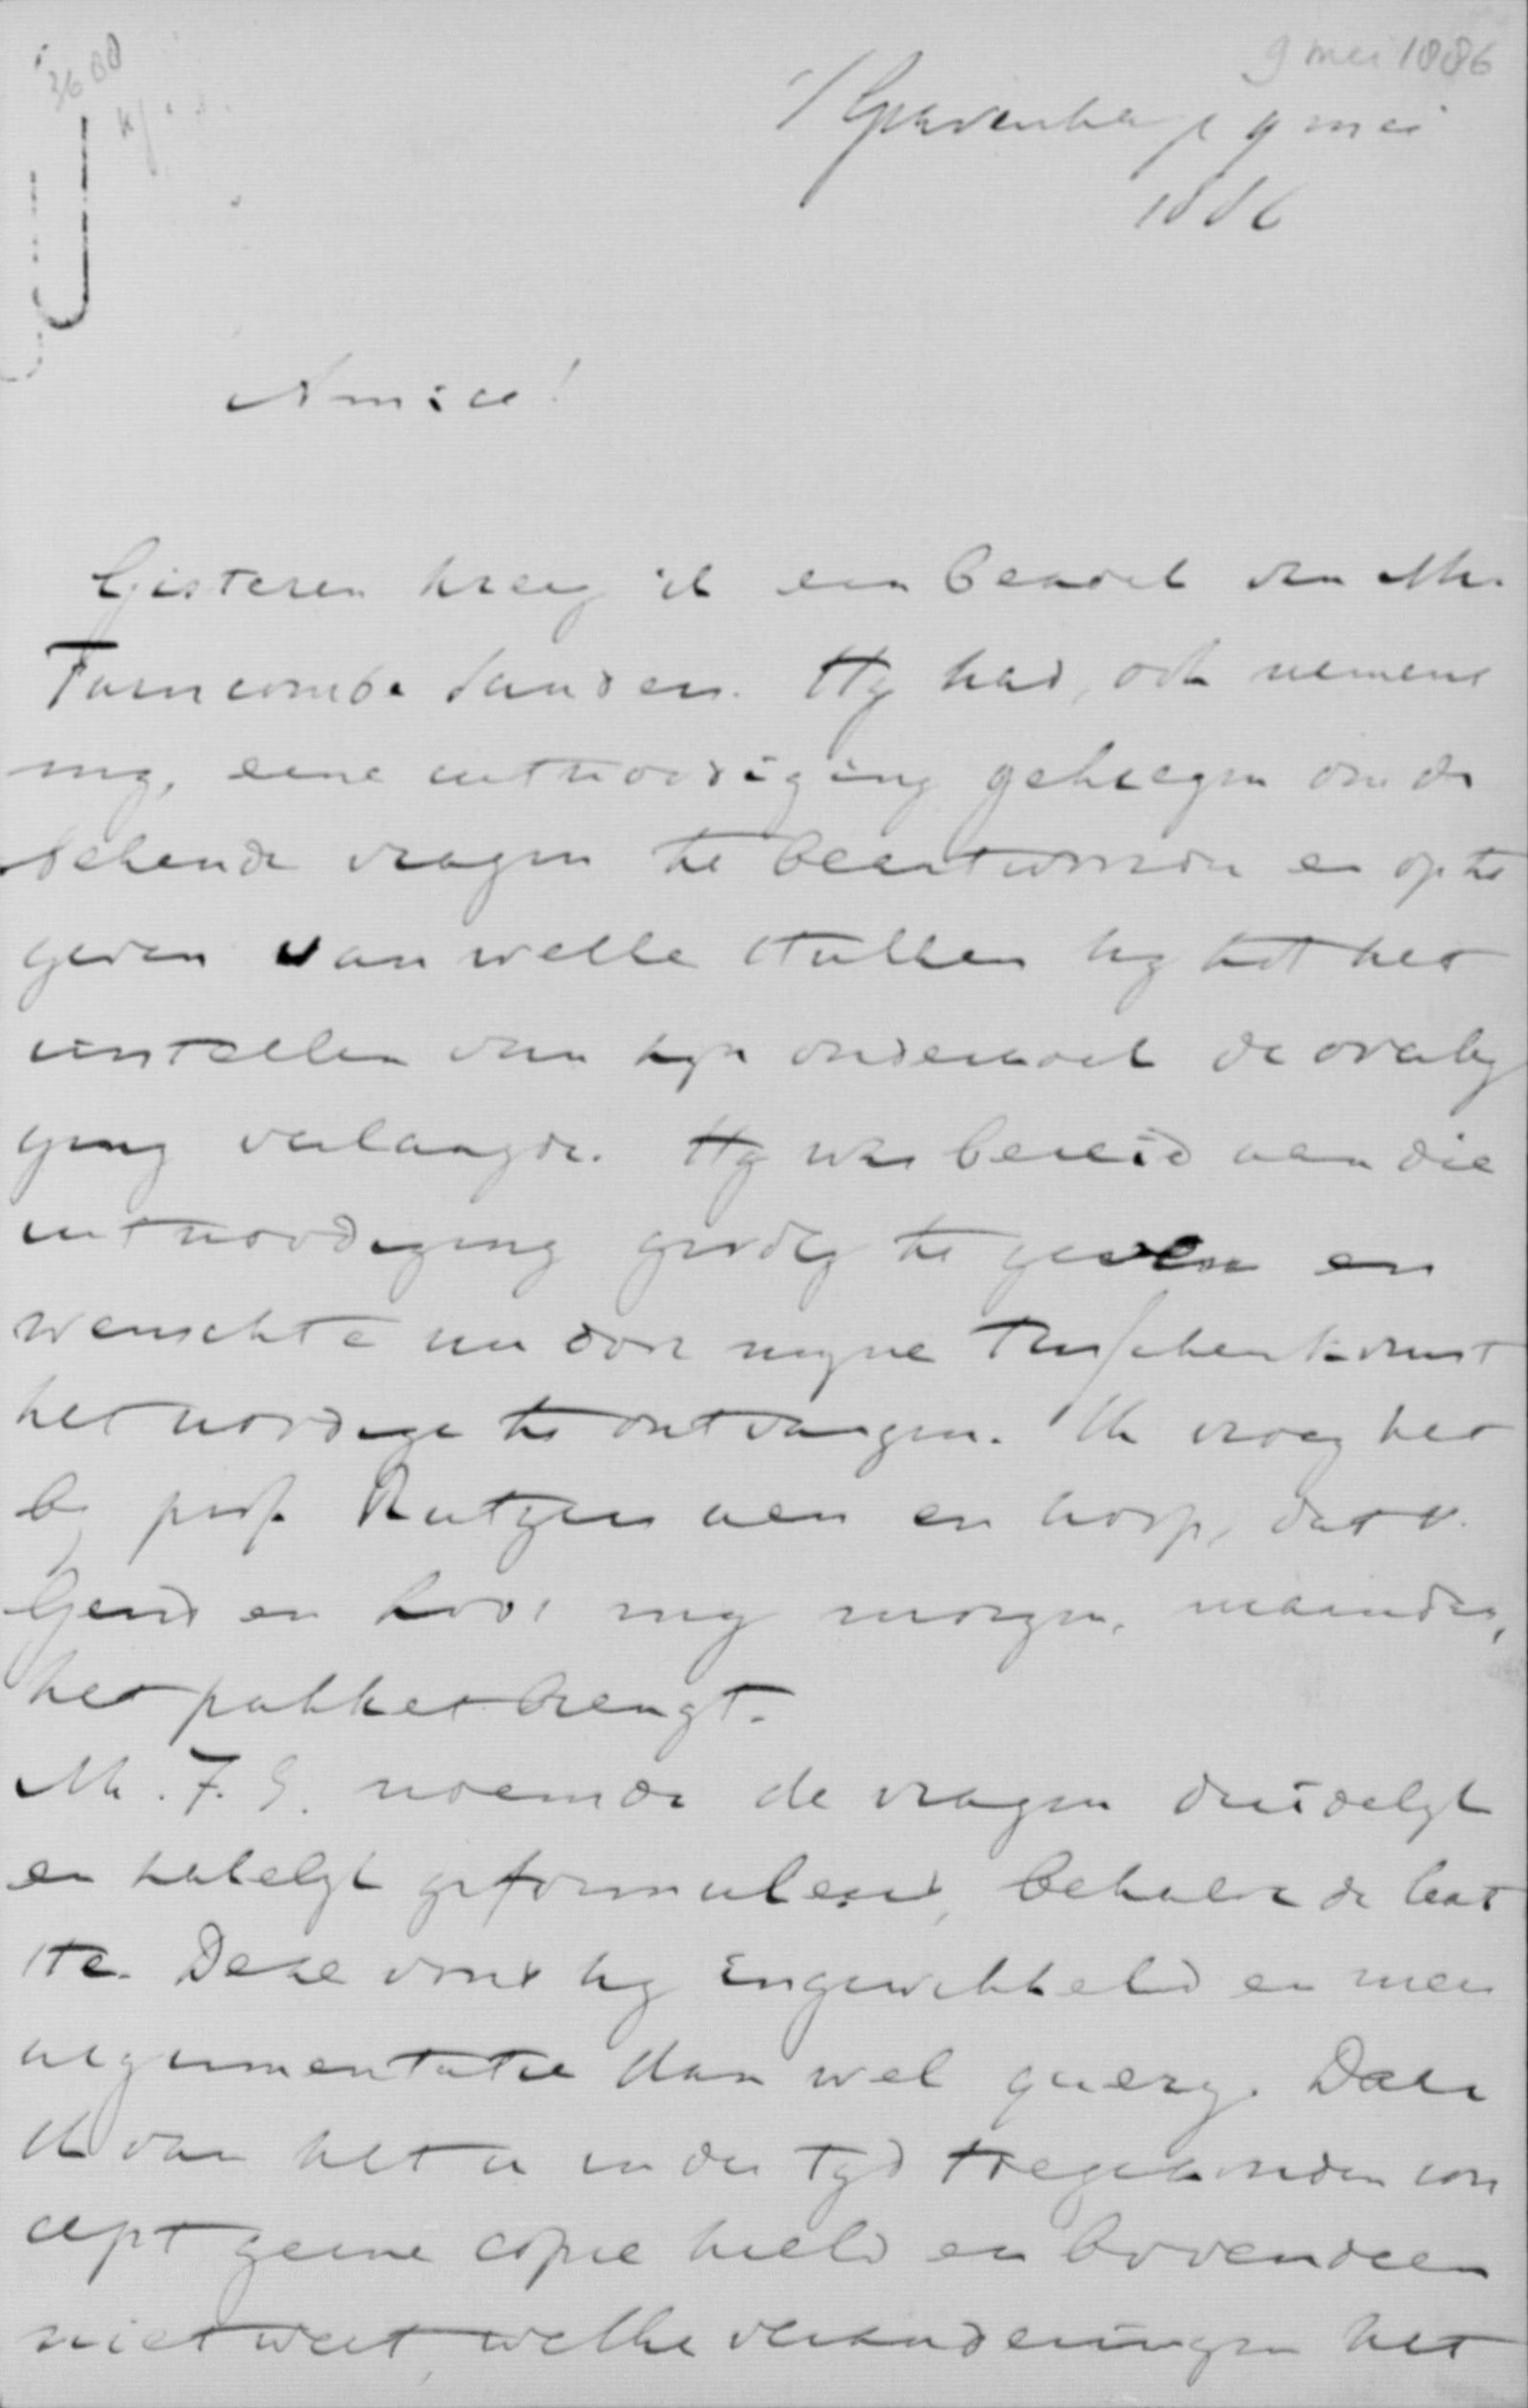 9 mei 1886
3688
's Gravenhage 9 mei
1886
Amice!
Gisteren kreeg ik een bezoek van Mr.
Farncombe Sanders. Hy had, ook namens
my, eene uitnoodiging gekregen om de
bekende vragen te beantwoorden en op te
geven van welke stukken hy tot het
instellen van zyn onderzoek de overleg
ging verlangde. Hy was bereid aan die
uitnoodiging gevolg te geven en
wenschte nu door myne tusschenkomst
het noodige te ontvangen. Ik vroeg het
by prof. Rutgers aan en hoop, dat v.
Gend en Loos my morgen, maandag,
het pakket brengt.
Mr. F. S. noemde de vragen duidelyk
en zakelyk geformuleerd, behalve de laat
ste. Deze vond hy ingewikkeld en meer
argumentatie dan wel query. Daar
ik van het u in der tyd toegezonden con
cept geene copie hield en bovendien
niet weet, welke veranderingen het